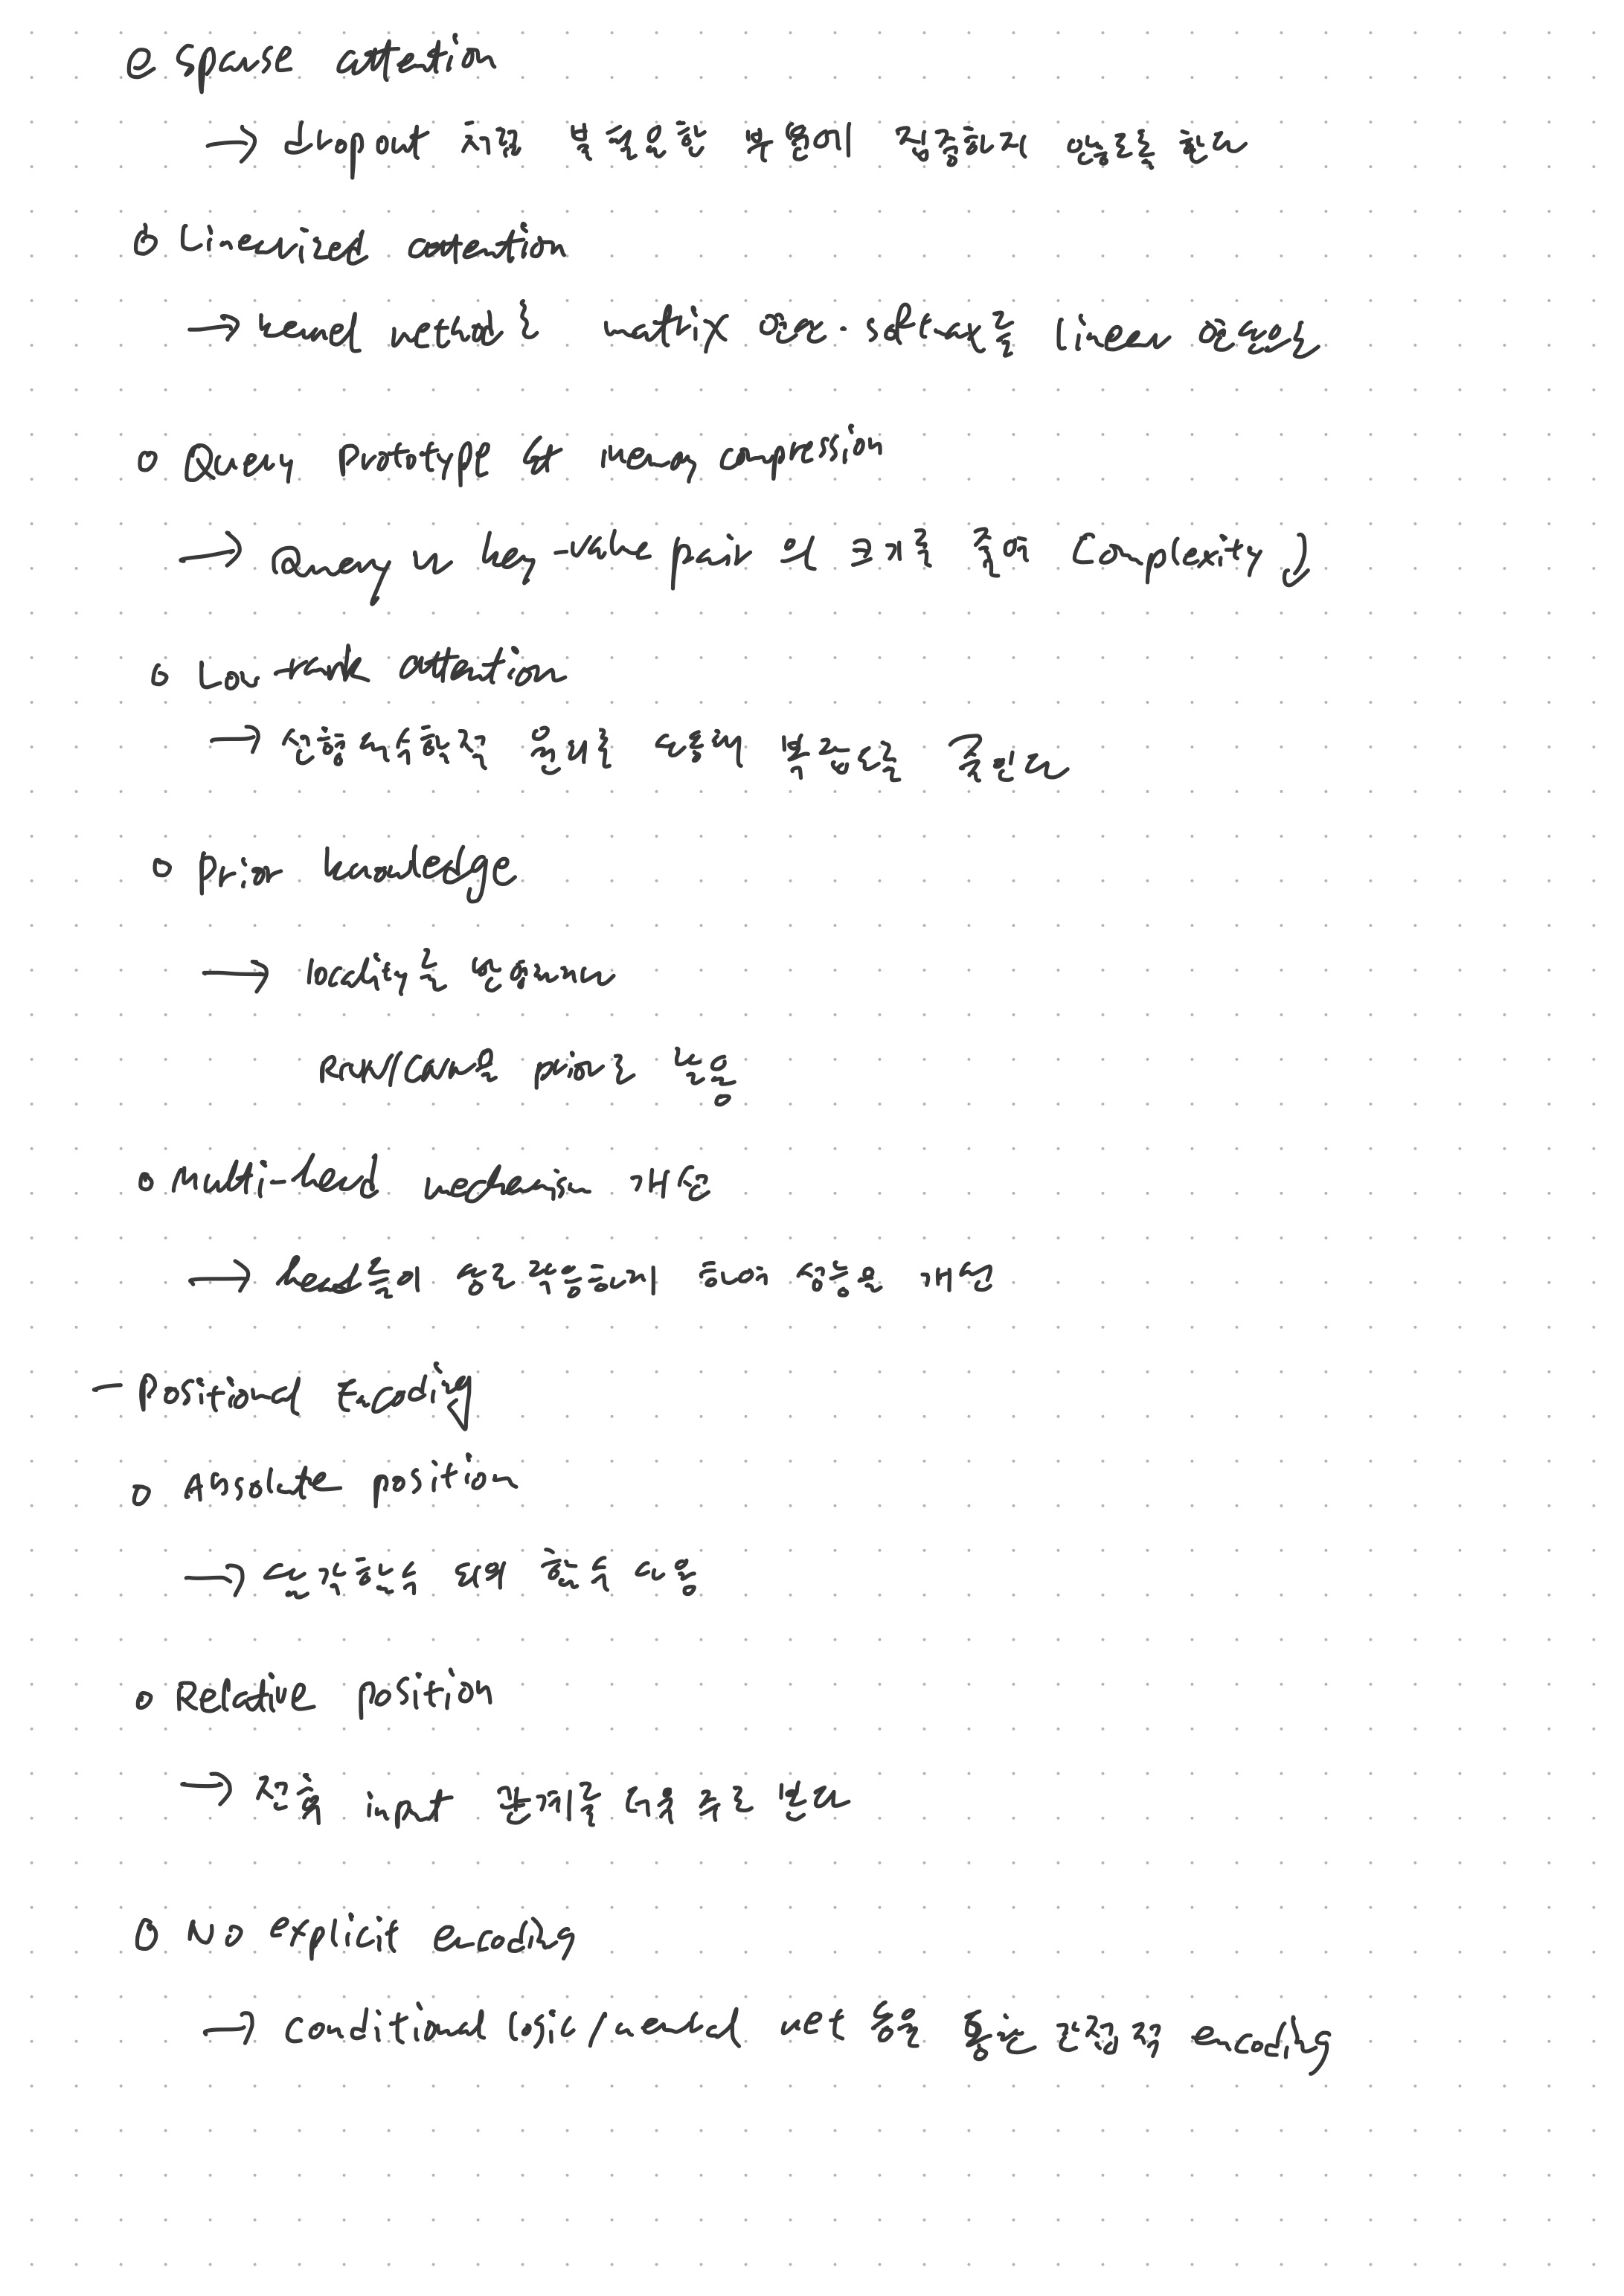 o Sparse attention
→ dropout 처럼 불필요한 부분에 집중하지 않도록 한다
o Linearized attention
→ kernel method로 matrix 연산 · softmax를 linear 연산으로
o Query prototype & memory compression
→ Query나 key-value pair의 크기를 줄여 Complexity ↓
o Low-rank attention
→ 선형대수학적 원리를 사용해 복잡도를 줄인다
o Prior knowledge
→ locality를 반영하거나
prior로 넣음
o Multi-head mechanism 개선
→ head들이 서로 다르게 하여 성능을 개선
- Positional Encoding
o Absolute position
→ 삼각함수 외의 함수 사용
o Relative position
→ 전후 input 관계를 더욱 주로 본다
o No explicit encoding
→ conditional logic / neural net 등을 통한 간접적 encoding